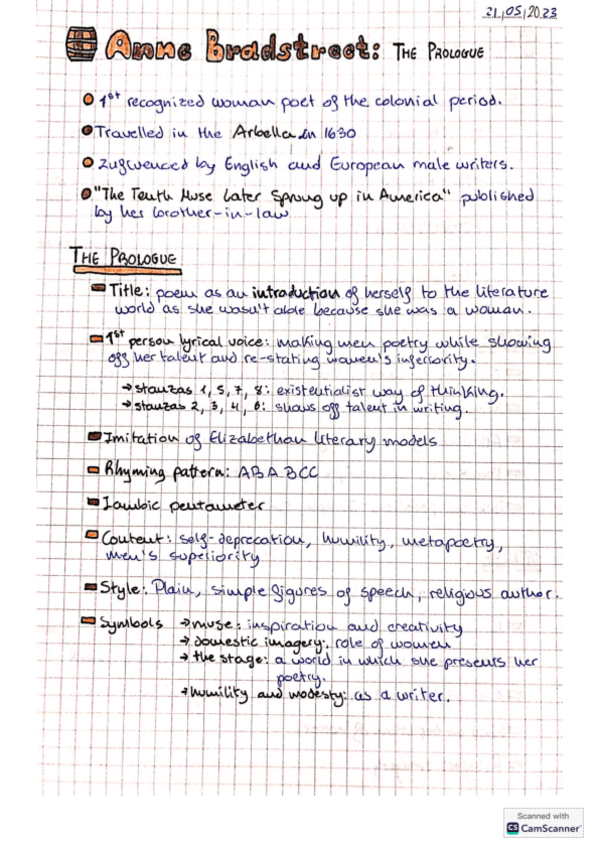 21/05/2023
Anne Bradstreet: THE PROLOGUE
1st recognized woman poet of the colonial period.
Travelled in the Arbella in 1630
Influenced by English and European male writers.
"The Tenth Muse Later Sprung up in America" published
by her brother-in-law
THE PROLOGUE
Title: poem as an introduction of herself to the literature
world as she wasn't able because she was a woman.
1st person lyrical voice: making men poetry while showing
off her talent and re-stating women's inferiority.
→ stanzas 1, 5, 7, 8: existentialist way of thinking.
→ stanzas 2, 3, 4, 6: shows off talent in writing.
Imitation of Elizabethan literary models
Rhyming pattern: ABABCC
Iambic pentameter
Content: self-deprecation, humility, metapoetry,
men's superiority
Style: Plain, simple figures of speech, religious author.
Symbols → muse: inspiration and creativity
→ domestic imagery: role of women
→ the stage: a world in which she presents her
poetry.
→ humility and modesty: as a writer.
Scanned with
CS CamScanner